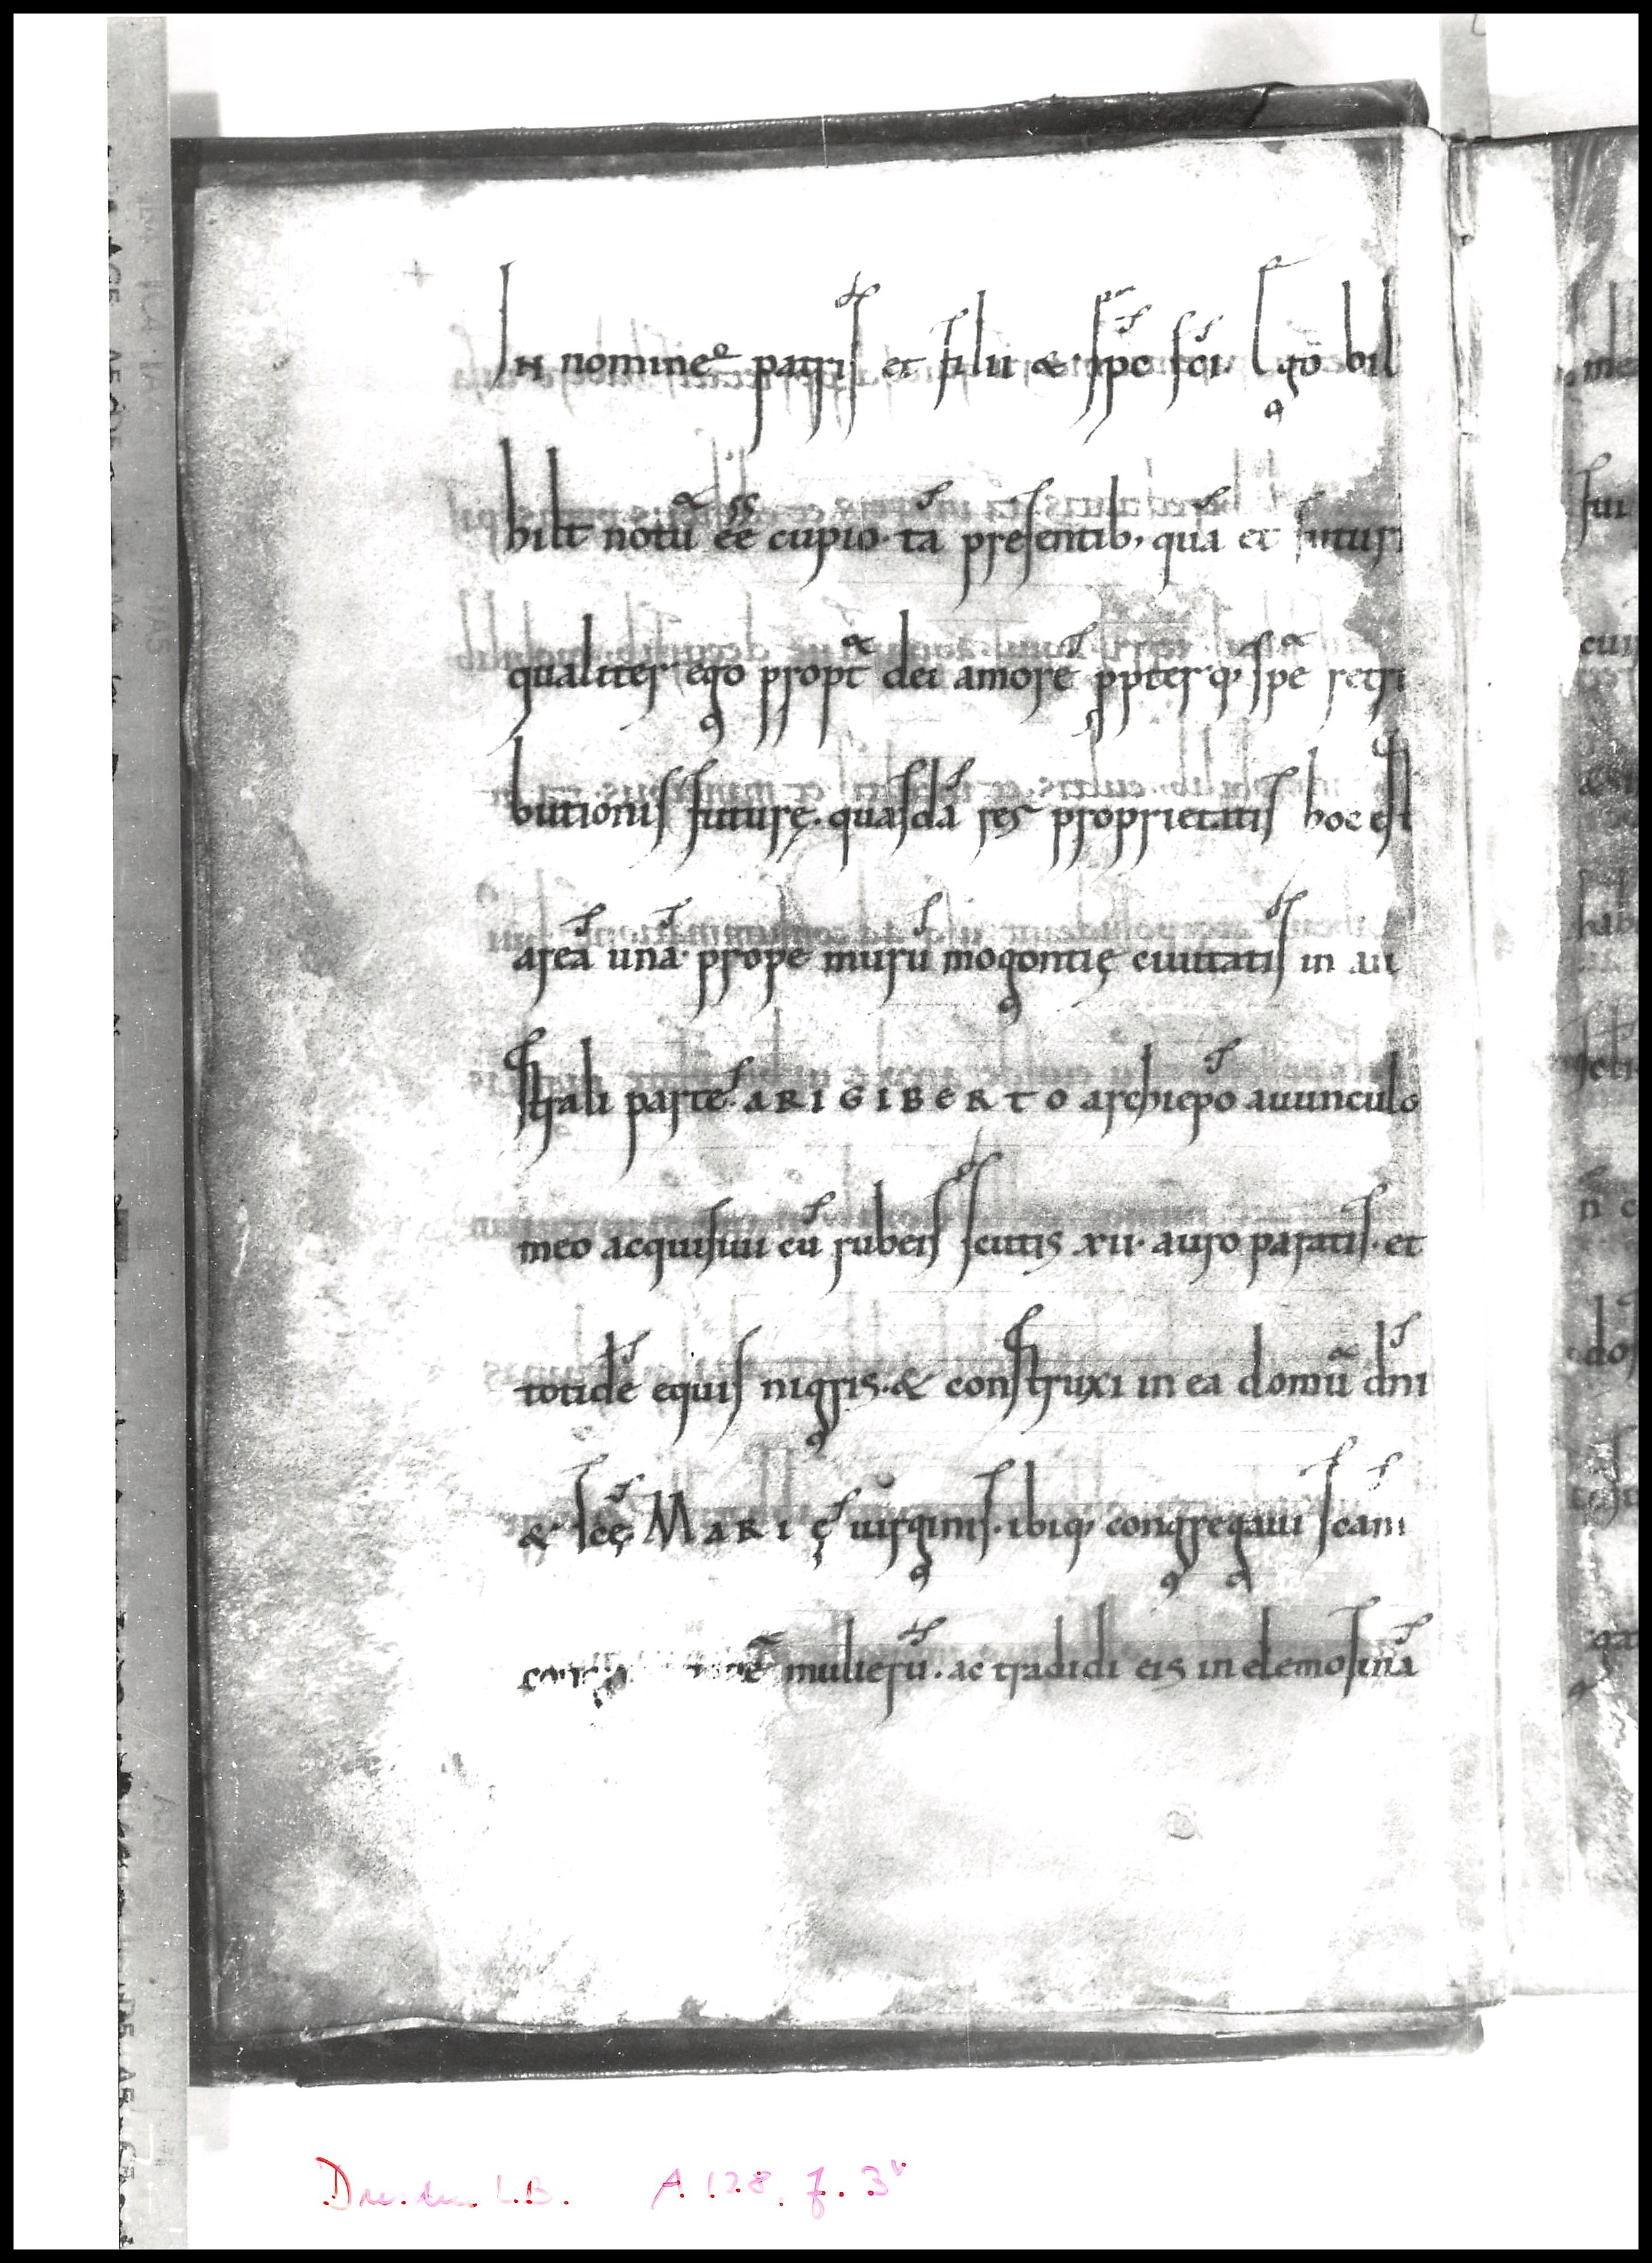 + In nomine patris et filii & sp̄c sc̄i. Ego bil
hilt notū ēē cupio. tā presentib; quā et futuri
qualiter ego propt̄ dei amorē ppterq; spē retri
butionis futurę. quasdā res proprietatis hoc est
areā unā. prope murū mogontię ciuitatis in au
strali parte. ARIGIBERTO archiep̄o auunculo
meo acquisiui cū rubeis scutis xii. auro paratis. et
totidē equis nigris. & construxi in ea domū dn̄i
& sc̄ę MARIę uirginis. ibiq; congregaui scam
mulierū. ac tradidi eis in elemosinā
A 128, f. 3v